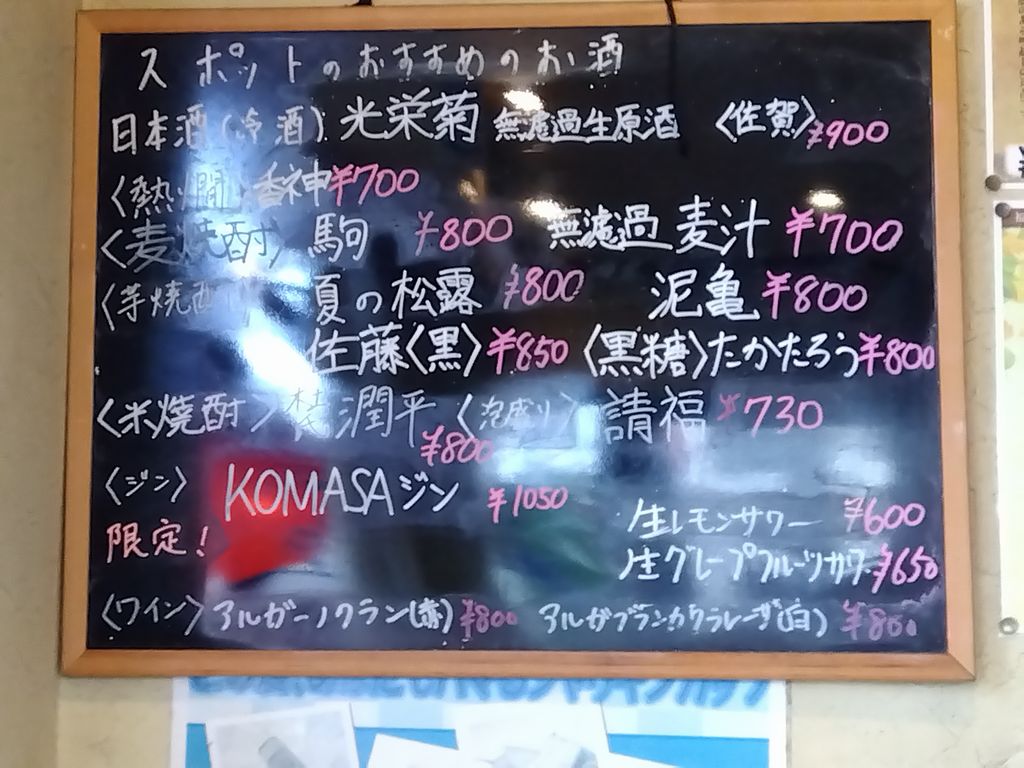 スポットのおすすめのお酒
日本酒(冷酒) 光栄菊 無濾過生原酒 〈佐賀〉¥900
〈熱燗〉香神¥700
〈麦焼酎〉 駒 ¥800 無濾過 麦汁 ¥700
〈芋焼酎〉 夏の松露 ¥800 泥亀 ¥800
佐藤〈黒〉¥850 〈黒糖〉たかたろう¥800
〈米焼酎〉 潤平 ¥800 〈泡盛り〉 請福 ¥730
〈ジン〉 KOMASAジン ¥1050
限定!
生レモンサワー ¥600
生グレープフルーツサワー¥650
〈ワイン〉アルガーノクラン(赤)¥800 アルガブランカクラレーザ(白) ¥800